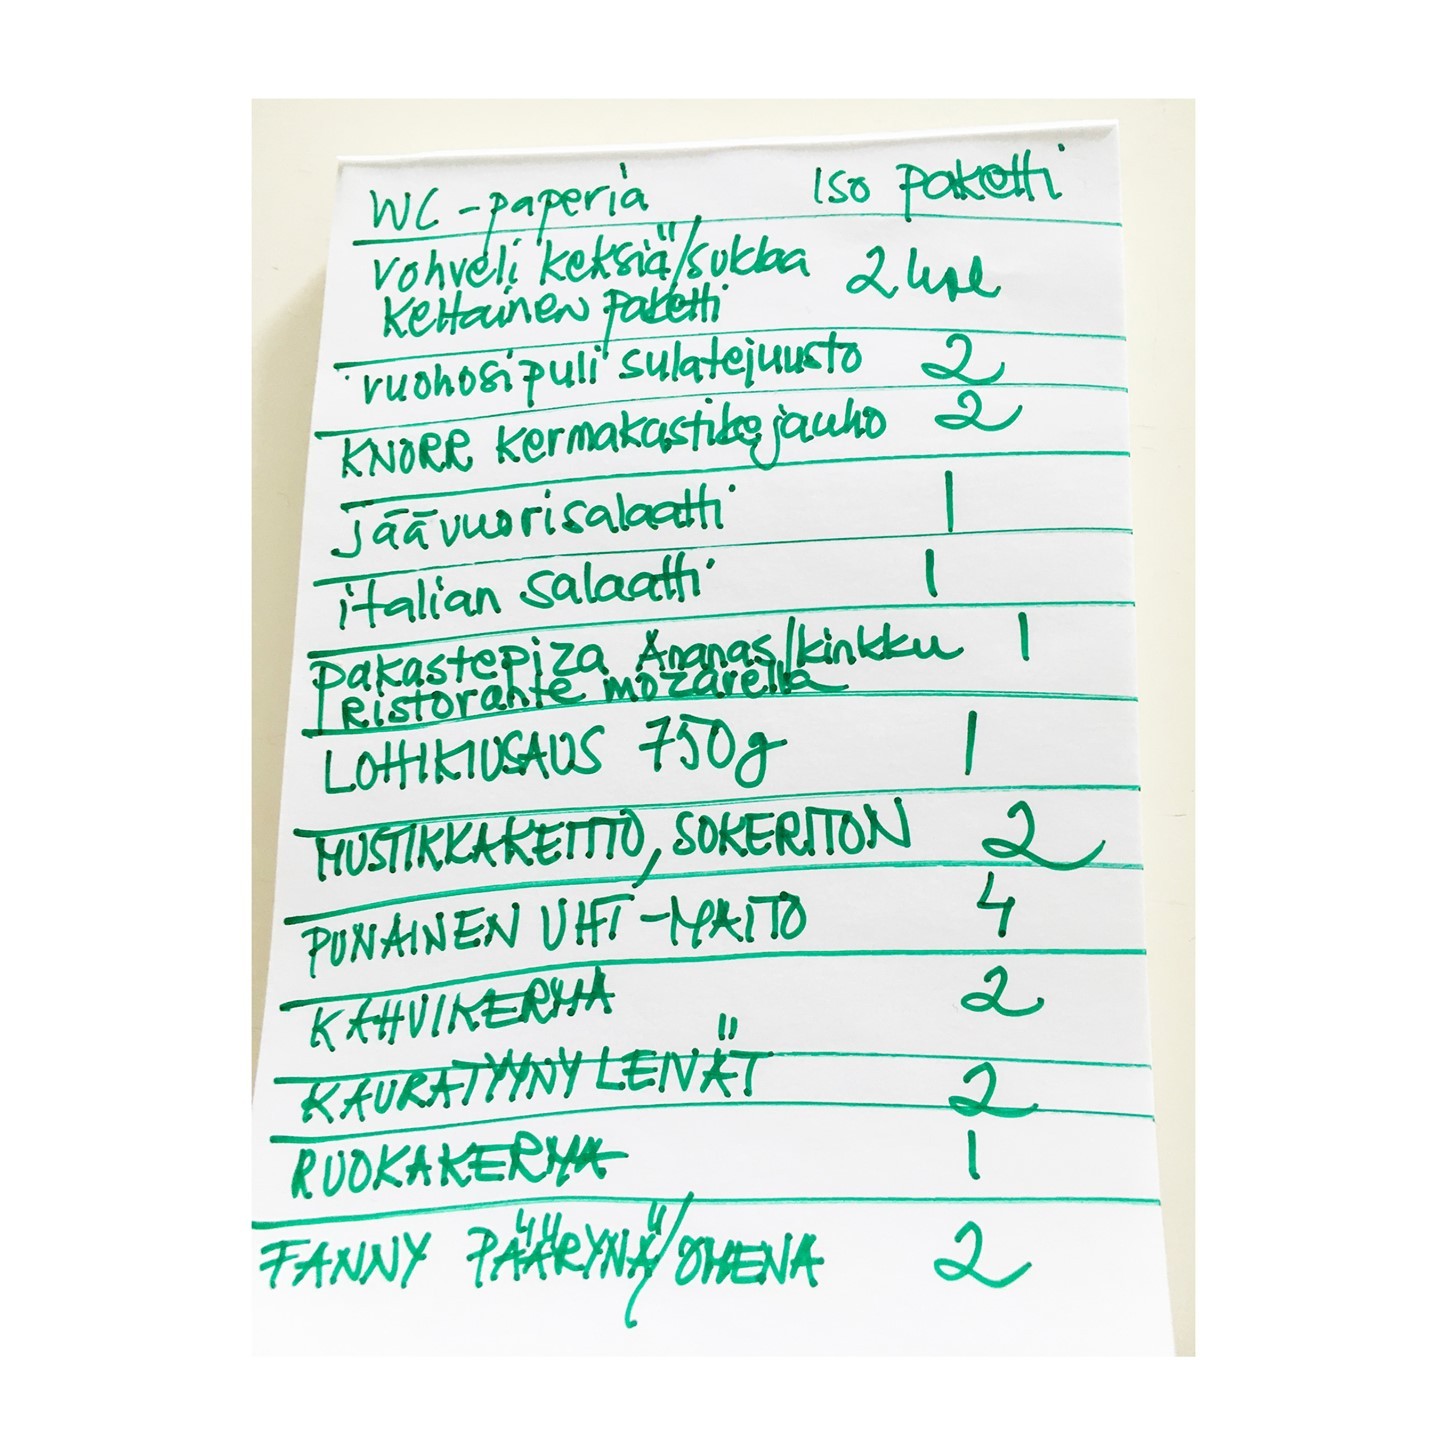 WC-paperia Iso paketti
vohveli keksiä/sukkaa 2 kpl
keltainen paketti
ruohosipuli sulatejuusto 2
KNORR kermakastikejauho 2
jäävuorisalaatti 1
italian salaatti 1
pakastepizza Ananas/kinkku 1
Ristorante mozarella
LOHIKIUSAUS 750g 1
MUSTIKKAKEITTO, SOKERITON 2
PUNAINEN UHT-MAITO 4
KAHVIKERMA 2
KAURATYYNYLEIVÄT 2
RUOKAKERMA 1
FANNY PÄÄRYNÄ/OMENA 2